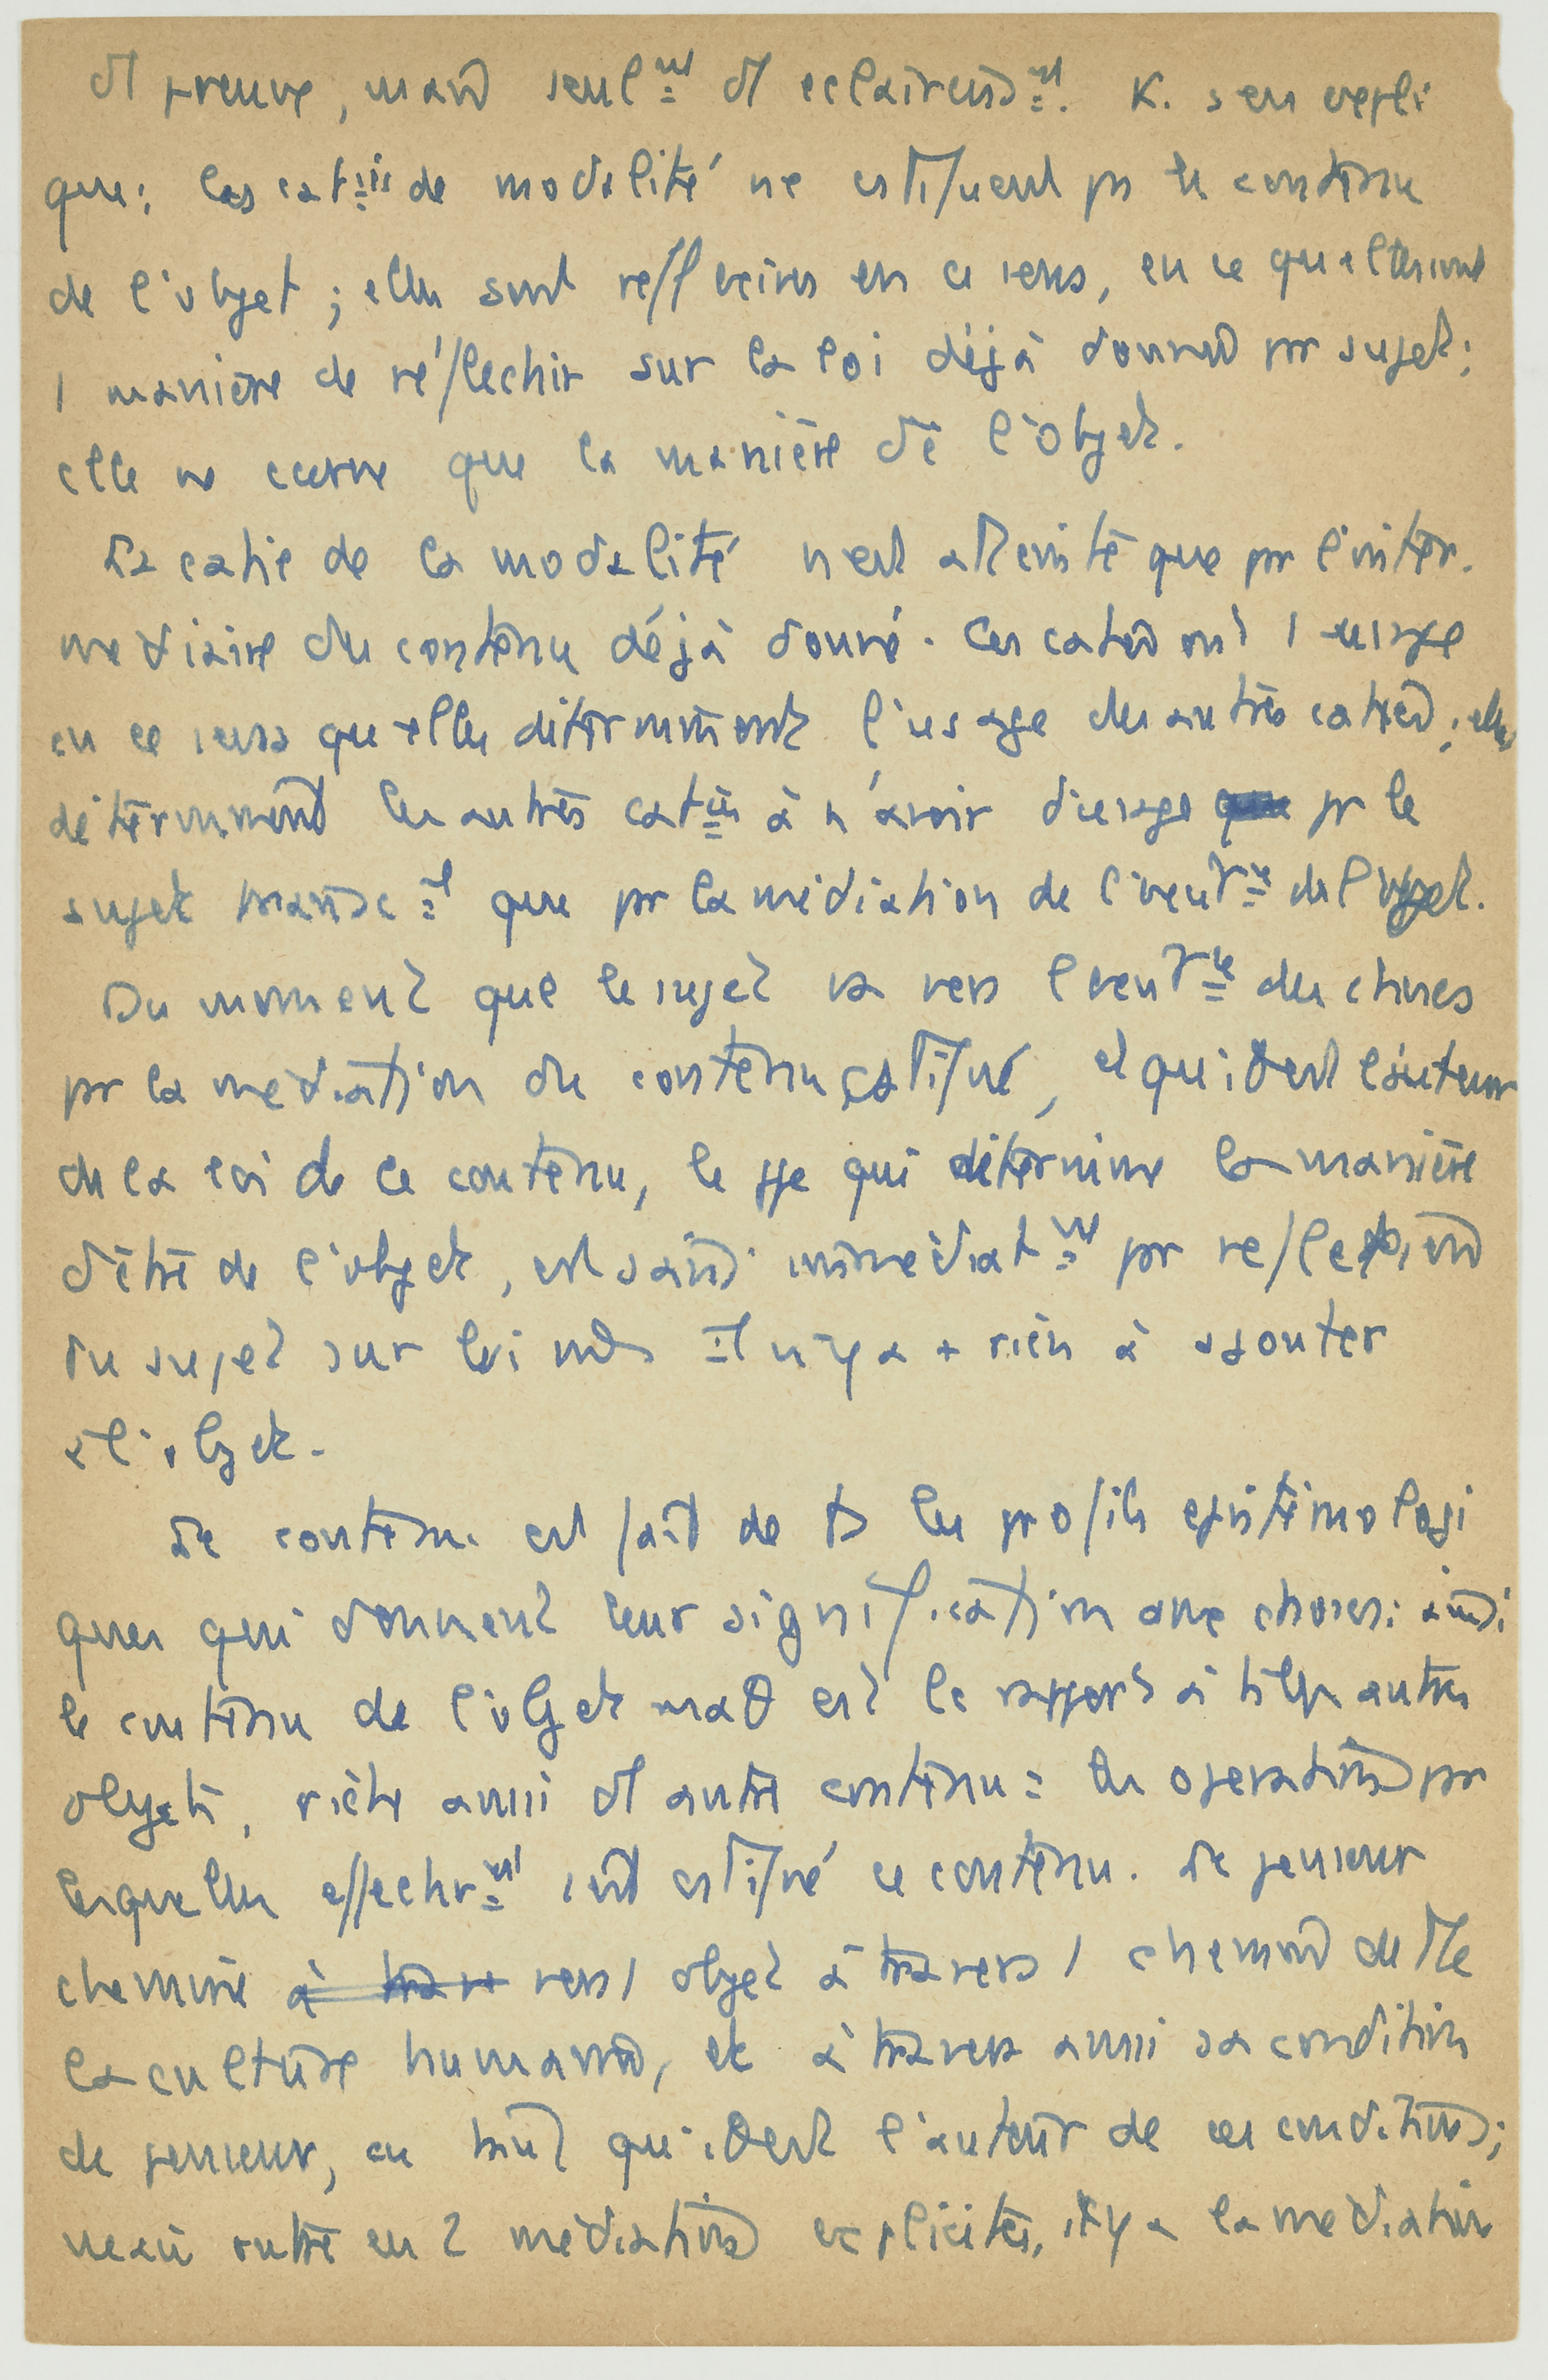 preuve, mais seul^mt d'eclairciss^mt. K. s'en expli
que: les cat^ies de modalité ne cstituent ps le contenu
de l'objet; elles sont reflexives en ce sens, en ce qu'elles sont
1 manière de réflechir sur la loi déjà donnée pr sujet;
elle ne cerne que la manière d'ê l'objet.
La catie de la modalité n'est atteinte que pr l'inter.
mediaire du contenu déjà donné. Ces caties ont 1 usage
en ce sens qu'elles déterminent l'usage des autres caties; elles
déterminent les autres cat^ies à n'avoir d'usage que pr le
sujet transc^al que pr la médiation de l'exist^ce de l'objet.
Du moment que le sujet va vers l'exist^ce des choses
pr la médiation du contenu cstitué, et qu'il est l'auteur
de la loi de ce contenu, le ppe qui détermine la manière
d'être de l'objet, est saisi immédiat^mt pr reflexion
du sujet sur lui mê il n'y a + rien à ajouter
à l'objet.
Le contenu est fait de ts les profils epistémologi
ques qui donnent leur signification aux choses: ainsi
le contenu de l'objet math est le rapport à tels autres
objets, riche aussi d'autre contenu: les operations pr
lesquelles effectiv^mt sont cstitué ce contenu. Le penseur
chemine à trav vers 1 objet à travers 1 chemin de tte
la culture humaine, et à travers aussi sa condition
de penseur, en tant qu'il est l'auteur de ces conditions;
mais outre ces 2 médiations explicites, il y a la médiation